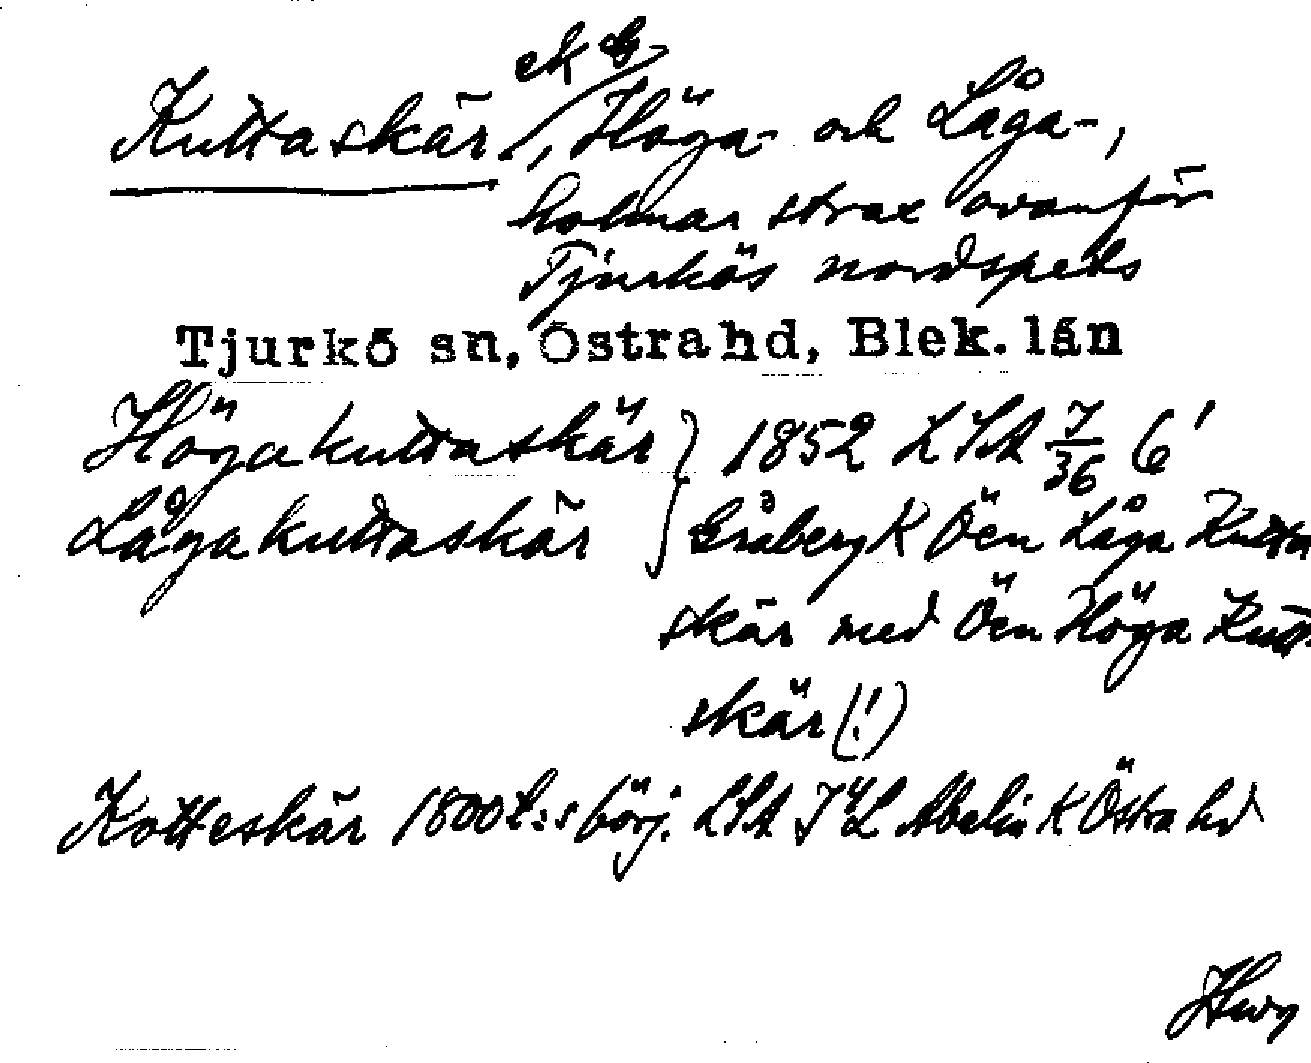 ek G
Kuttaskär, Höga- och Låga-,
holmar strax ovanför
Tjurkös nordspets
Tjurkö sn, Östra hd, Blek. län
Högakuttaskär } 1852 LSA 7/36 6'
Lågakuttaskär Gråberg K Öen Låga Kutta
skär med Öen Höga Kutta
skär (!)
Kotteskär 1800 t:s börj. LSA K Östra hd